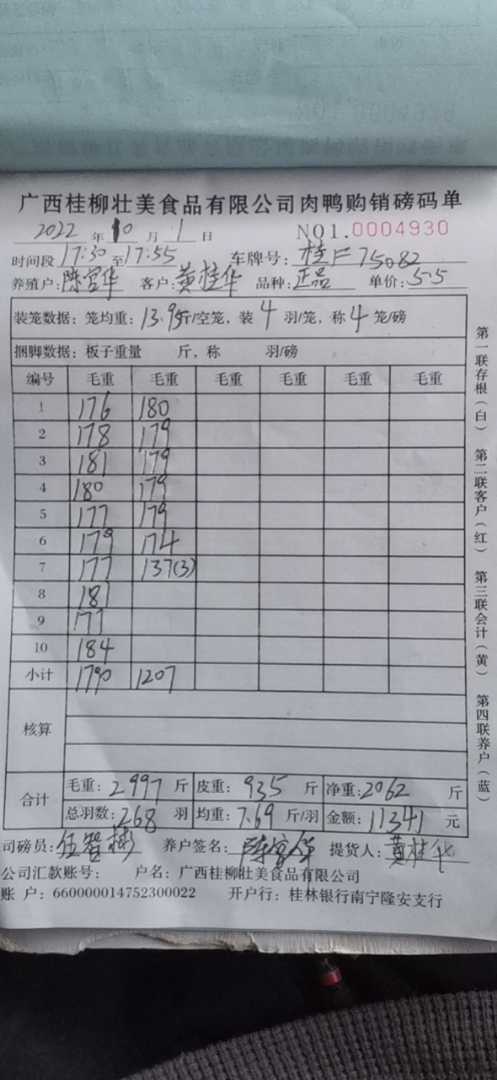 广西桂柳壮美食品有限公司肉鸭购销磅码单
2022 年 10 月 1 日 NO1.0004930
时间段 17:30 至 17:55 车牌号: 桂F75082
养殖户: 陈富华 客户: 黄桂华 品种: 正品 单价: 5.5
装笼数据: 笼均重: 13.95斤/空笼, 装 4 羽/笼, 称 4 笼/磅
捆脚数据: 板子重量 斤, 称 羽/磅
编号 毛重 毛重 毛重 毛重 毛重 毛重
1 176 180
2 178 179
3 181 179
4 180 179
5 177 179
6 179 174
7 177 137(3)
8 181
9 177
10 184
小计 1790 1207
核算
合计 毛重: 2997 斤 皮重: 935 斤 净重: 2062 斤
总羽数: 268 羽 均重: 7.69 斤/羽 金额: 11341 元
司磅员: 养户签名: 陈富华 提货人: 黄桂华
公司汇款账号: 户名: 广西桂柳壮美食品有限公司
账 户: 660000014752300022 开户行: 桂林银行南宁隆安支行
第一联存根(白) 第二联客户(红) 第三联会计(黄) 第四联养户(蓝)